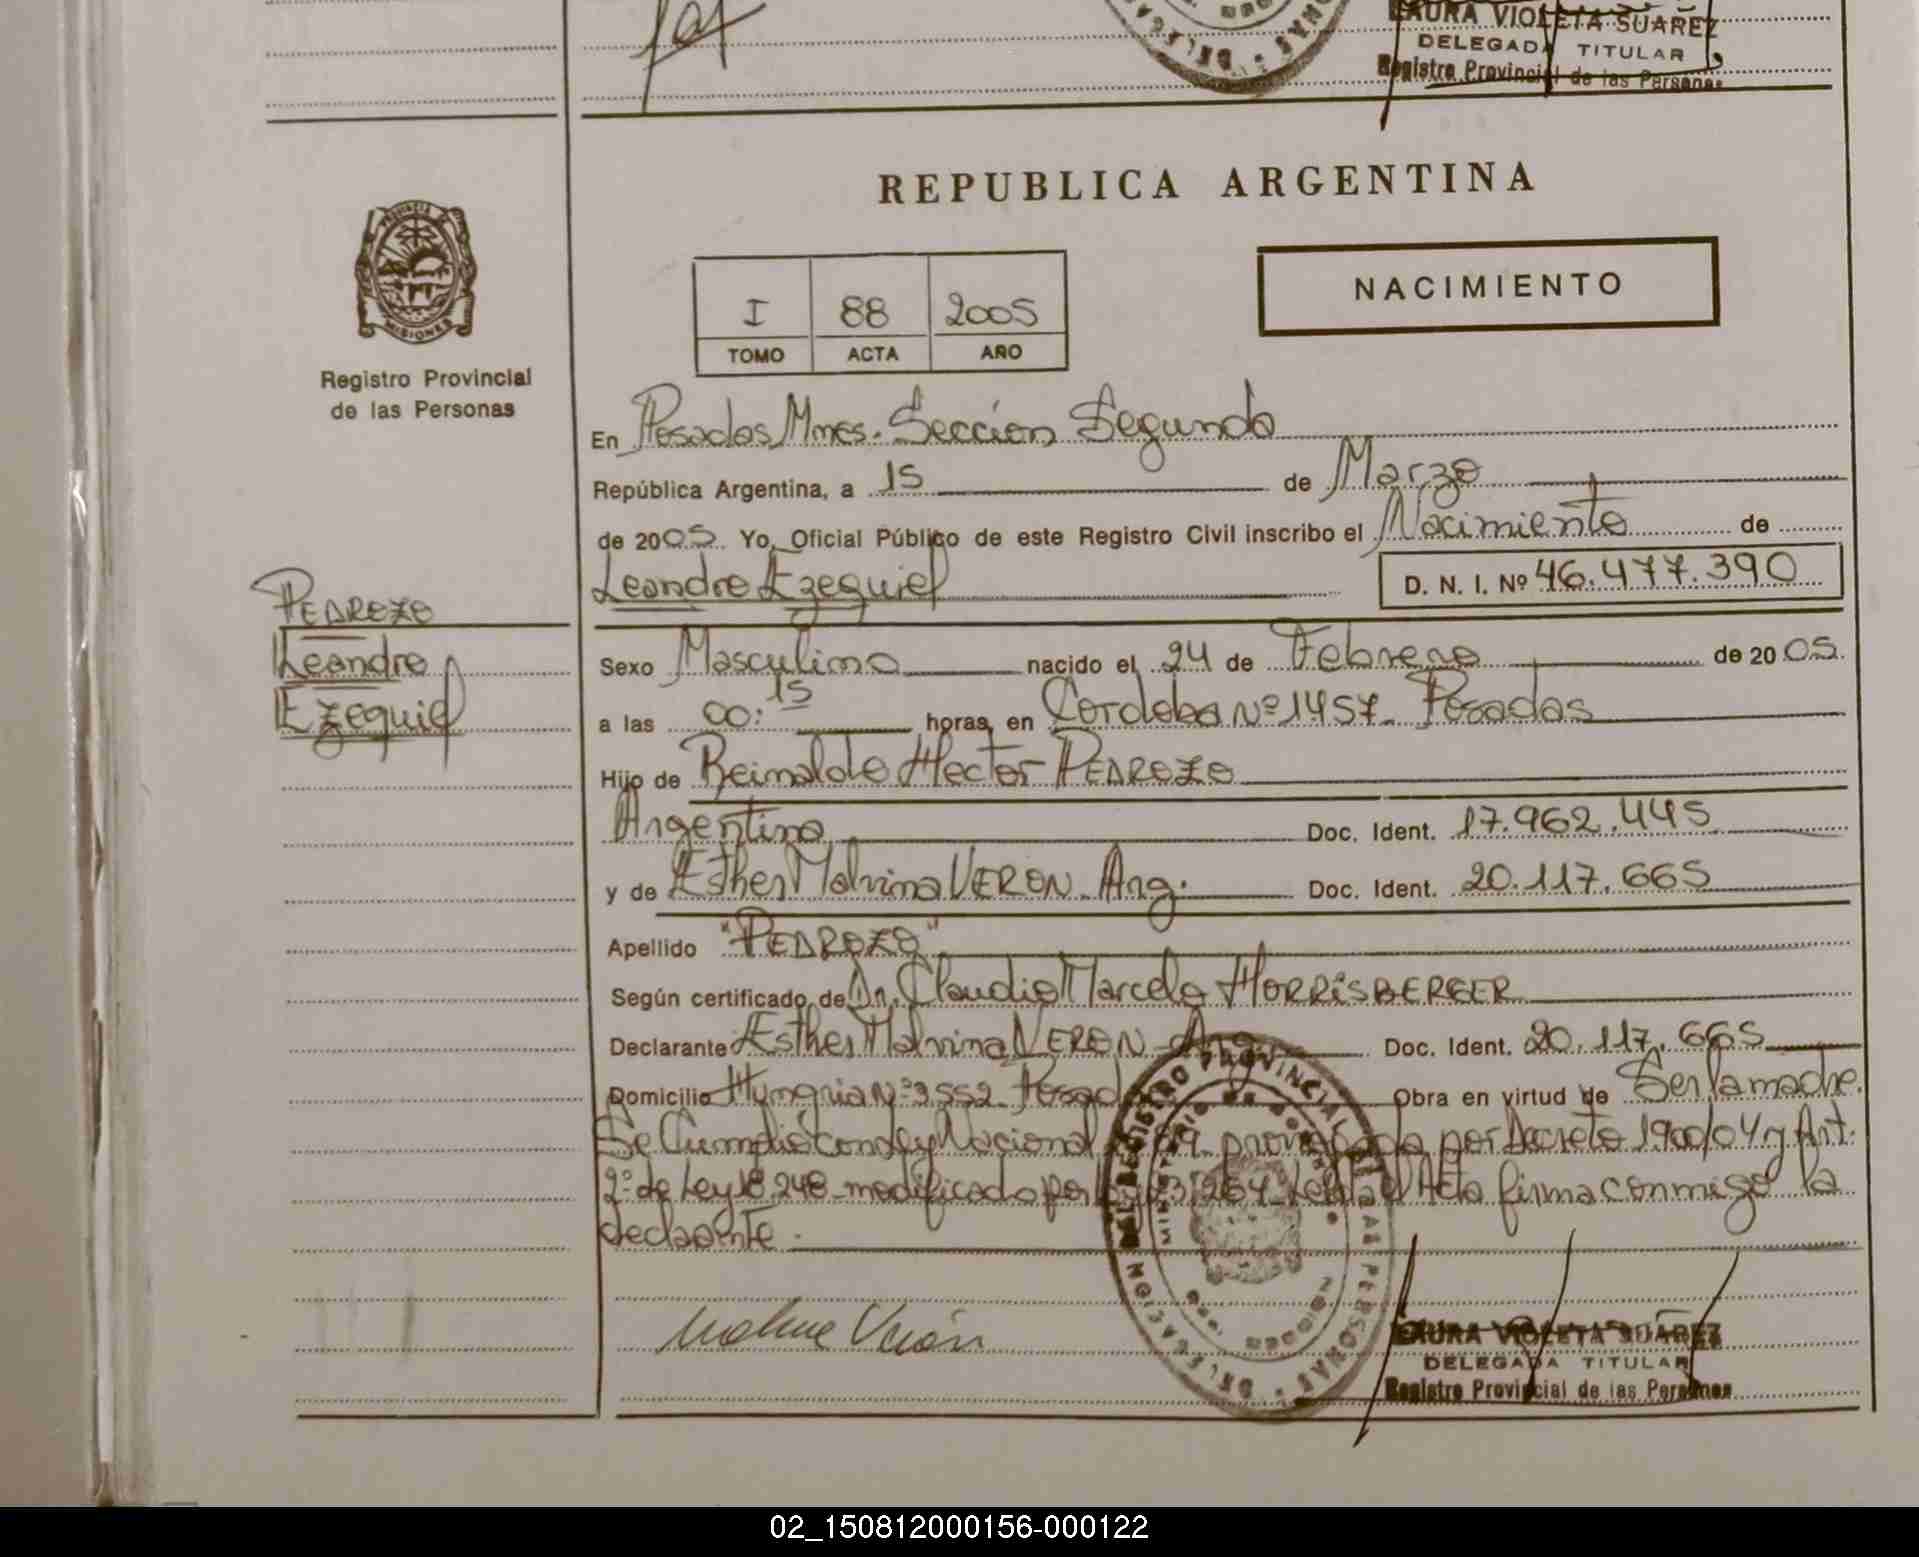 LAURA VIOLETA SUAREZ
DELEGADA TITULAR
Registro Provincial de las Personas
REPUBLICA ARGENTINA
PROVINCIA DE
MISIONES
Registro Provincial
de las Personas
I 88 2005
TOMO ACTA AÑO
NACIMIENTO
En Posadas, Mnes. Sección Segunda
República Argentina, a 15 de Marzo
de 2005. Yo, Oficial Público de este Registro Civil inscribo el Nacimiento de
Leandro Ezequiel D. N. I. Nº 46.477.390
PEDROZO
Leandro
Ezequiel
Sexo Masculino nacido el 24 de Febrero de 2005.
a las 00:15 horas, en Cordoba Nº 1457- Posadas
Hijo de Reinaldo Hector PEDROZO
Argentino Doc. Ident. 17.962.445
y de Esther Malvina VERON- Arg. Doc. Ident. 20.117.665
Apellido "PEDROZO"
Según certificado de Dr. Claudio Marcelo HORRISBERGER
Declarante Esther Malvina VERON- Arg. Doc. Ident. 20.117.665
Domicilio Hungria Nº 3552- Posad Obra en virtud de Ser la madre.
Se Cumplió con Ley Nacional por Decreto 1900/04 y Art.
2º de Ley 18.248- modificado por Leida el Acta firma conmigo la
declarante.
DELEGACION DEL REGISTRO PROVINCIAL DE LAS PERSONAS
Malvina Verón
LAURA VIOLETA SUAREZ
DELEGADA TITULAR
Registro Provincial de las Personas
02_150812000156-000122